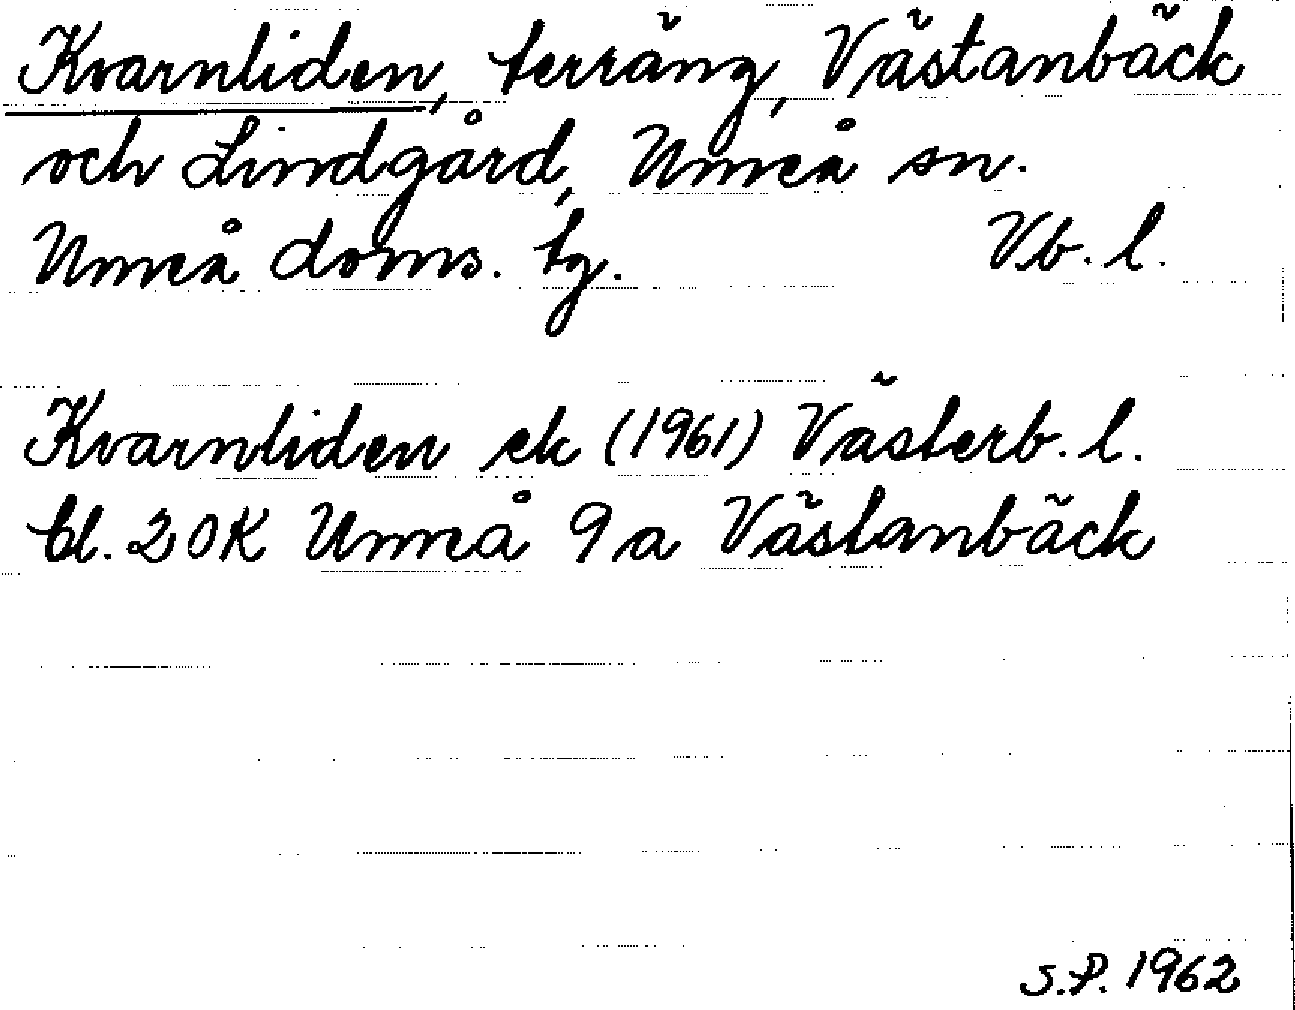 Kvarnliden, terräng, Västanbäck
och Lindgård, Umeå sn.
Umeå doms. tg. Vb. l.
Kvarnliden ek (1961) Västerb. l.
bl. 20K Umeå 9a Västanbäck
S.P. 1962